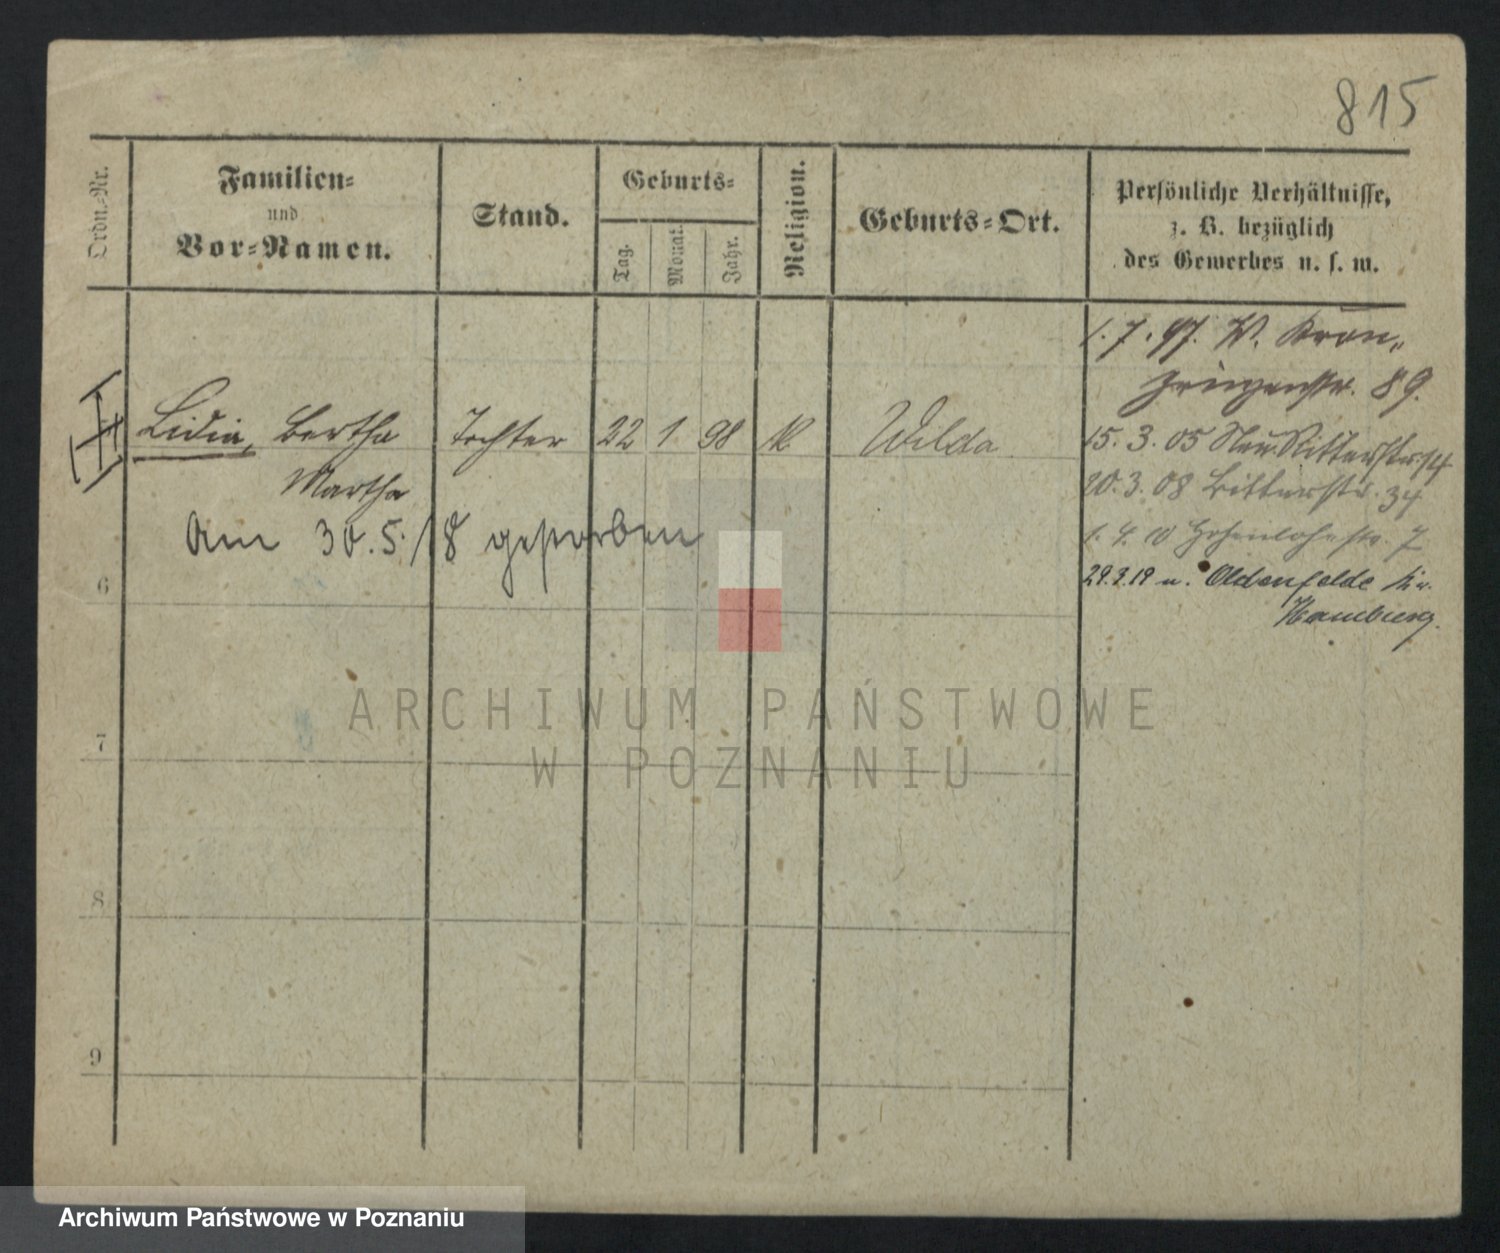 815
Ordn.-Nr.
Familien-
und
Vor-Namen.
Stand.
Geburts-
Tag.
Monat.
Jahr.
Religion.
Geburts-Ort.
Persönliche Verhältnisse,
z. B. bezüglich
des Gewerbes u. s. w.
1. 7. 97. W. Kron-
prinzenstr. 89.
Lidia, Bertha Tochter 22 1 98 k Wilda
Martha
15. 3. 05 Neu Ritterstr. 14
20. 3. 08 Ritterstr. 34
Am 30.5./18 gestorben
1. 4. 10 Hohenlohestr. 7
29.3.19 n. Oldenfelde Kr.
Hamburg.
6
7
8
9
ARCHIWUM PAŃSTWOWE
W POZNANIU
Archiwum Państwowe w Poznaniu